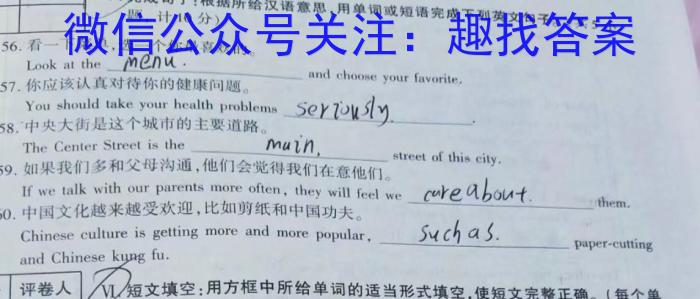 完成句子:根据所给汉语意思,用单词或短语完成下列英文句子
题,计10分)
微信公众号关注：趣找答案
56.看一
Look at the menu. and choose your favorite.
57.你应该认真对待你的健康问题。
You should take your health problems seriously.
58.中央大街是这个城市的主要道路。
The Center Street is the main, street of this city.
59.如果我们多和父母沟通,他们会觉得我们在意他们。
If we talk with our parents more often, they will feel we care about. them.
60.中国文化越来越受欢迎,比如剪纸和中国功夫。
Chinese culture is getting more and more popular, such as. paper-cutting
and Chinese kung fu.
评卷人 Ⅵ.短文填空:用方框中所给单词的适当形式填空,使短文完整正确。(每个单